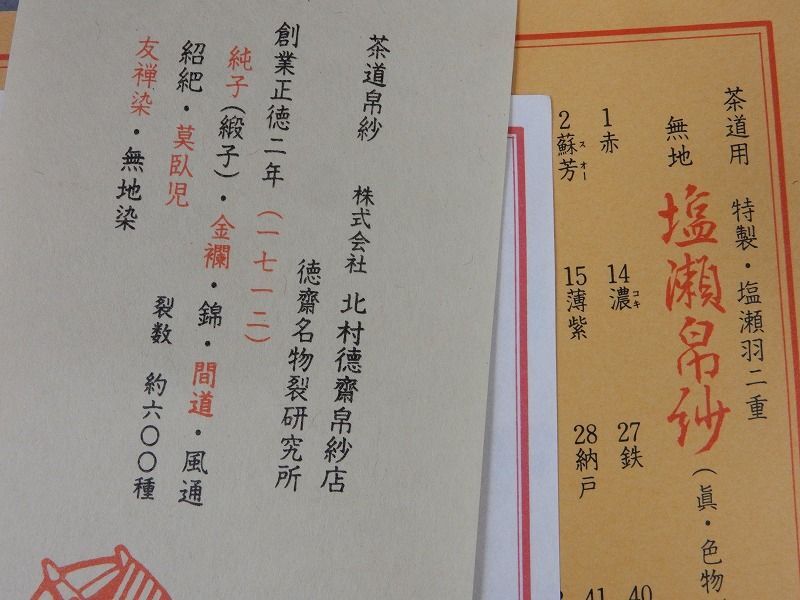 茶道帛紗
株式会社 北村德齋帛紗店
徳齋名物裂研究所
創業正徳二年 (一七一二)
純子(緞子)・金襴・錦・間道・風通
紹紦・莫臥児
友禅染・無地染
裂数 約六〇〇種
茶道用 特製・塩瀬羽二重
無地 塩瀬帛紗 (眞・色物
1 赤
14 濃 コキ
27 鉄
40
2 蘇芳 スオー
15 薄紫
28 納戸
41